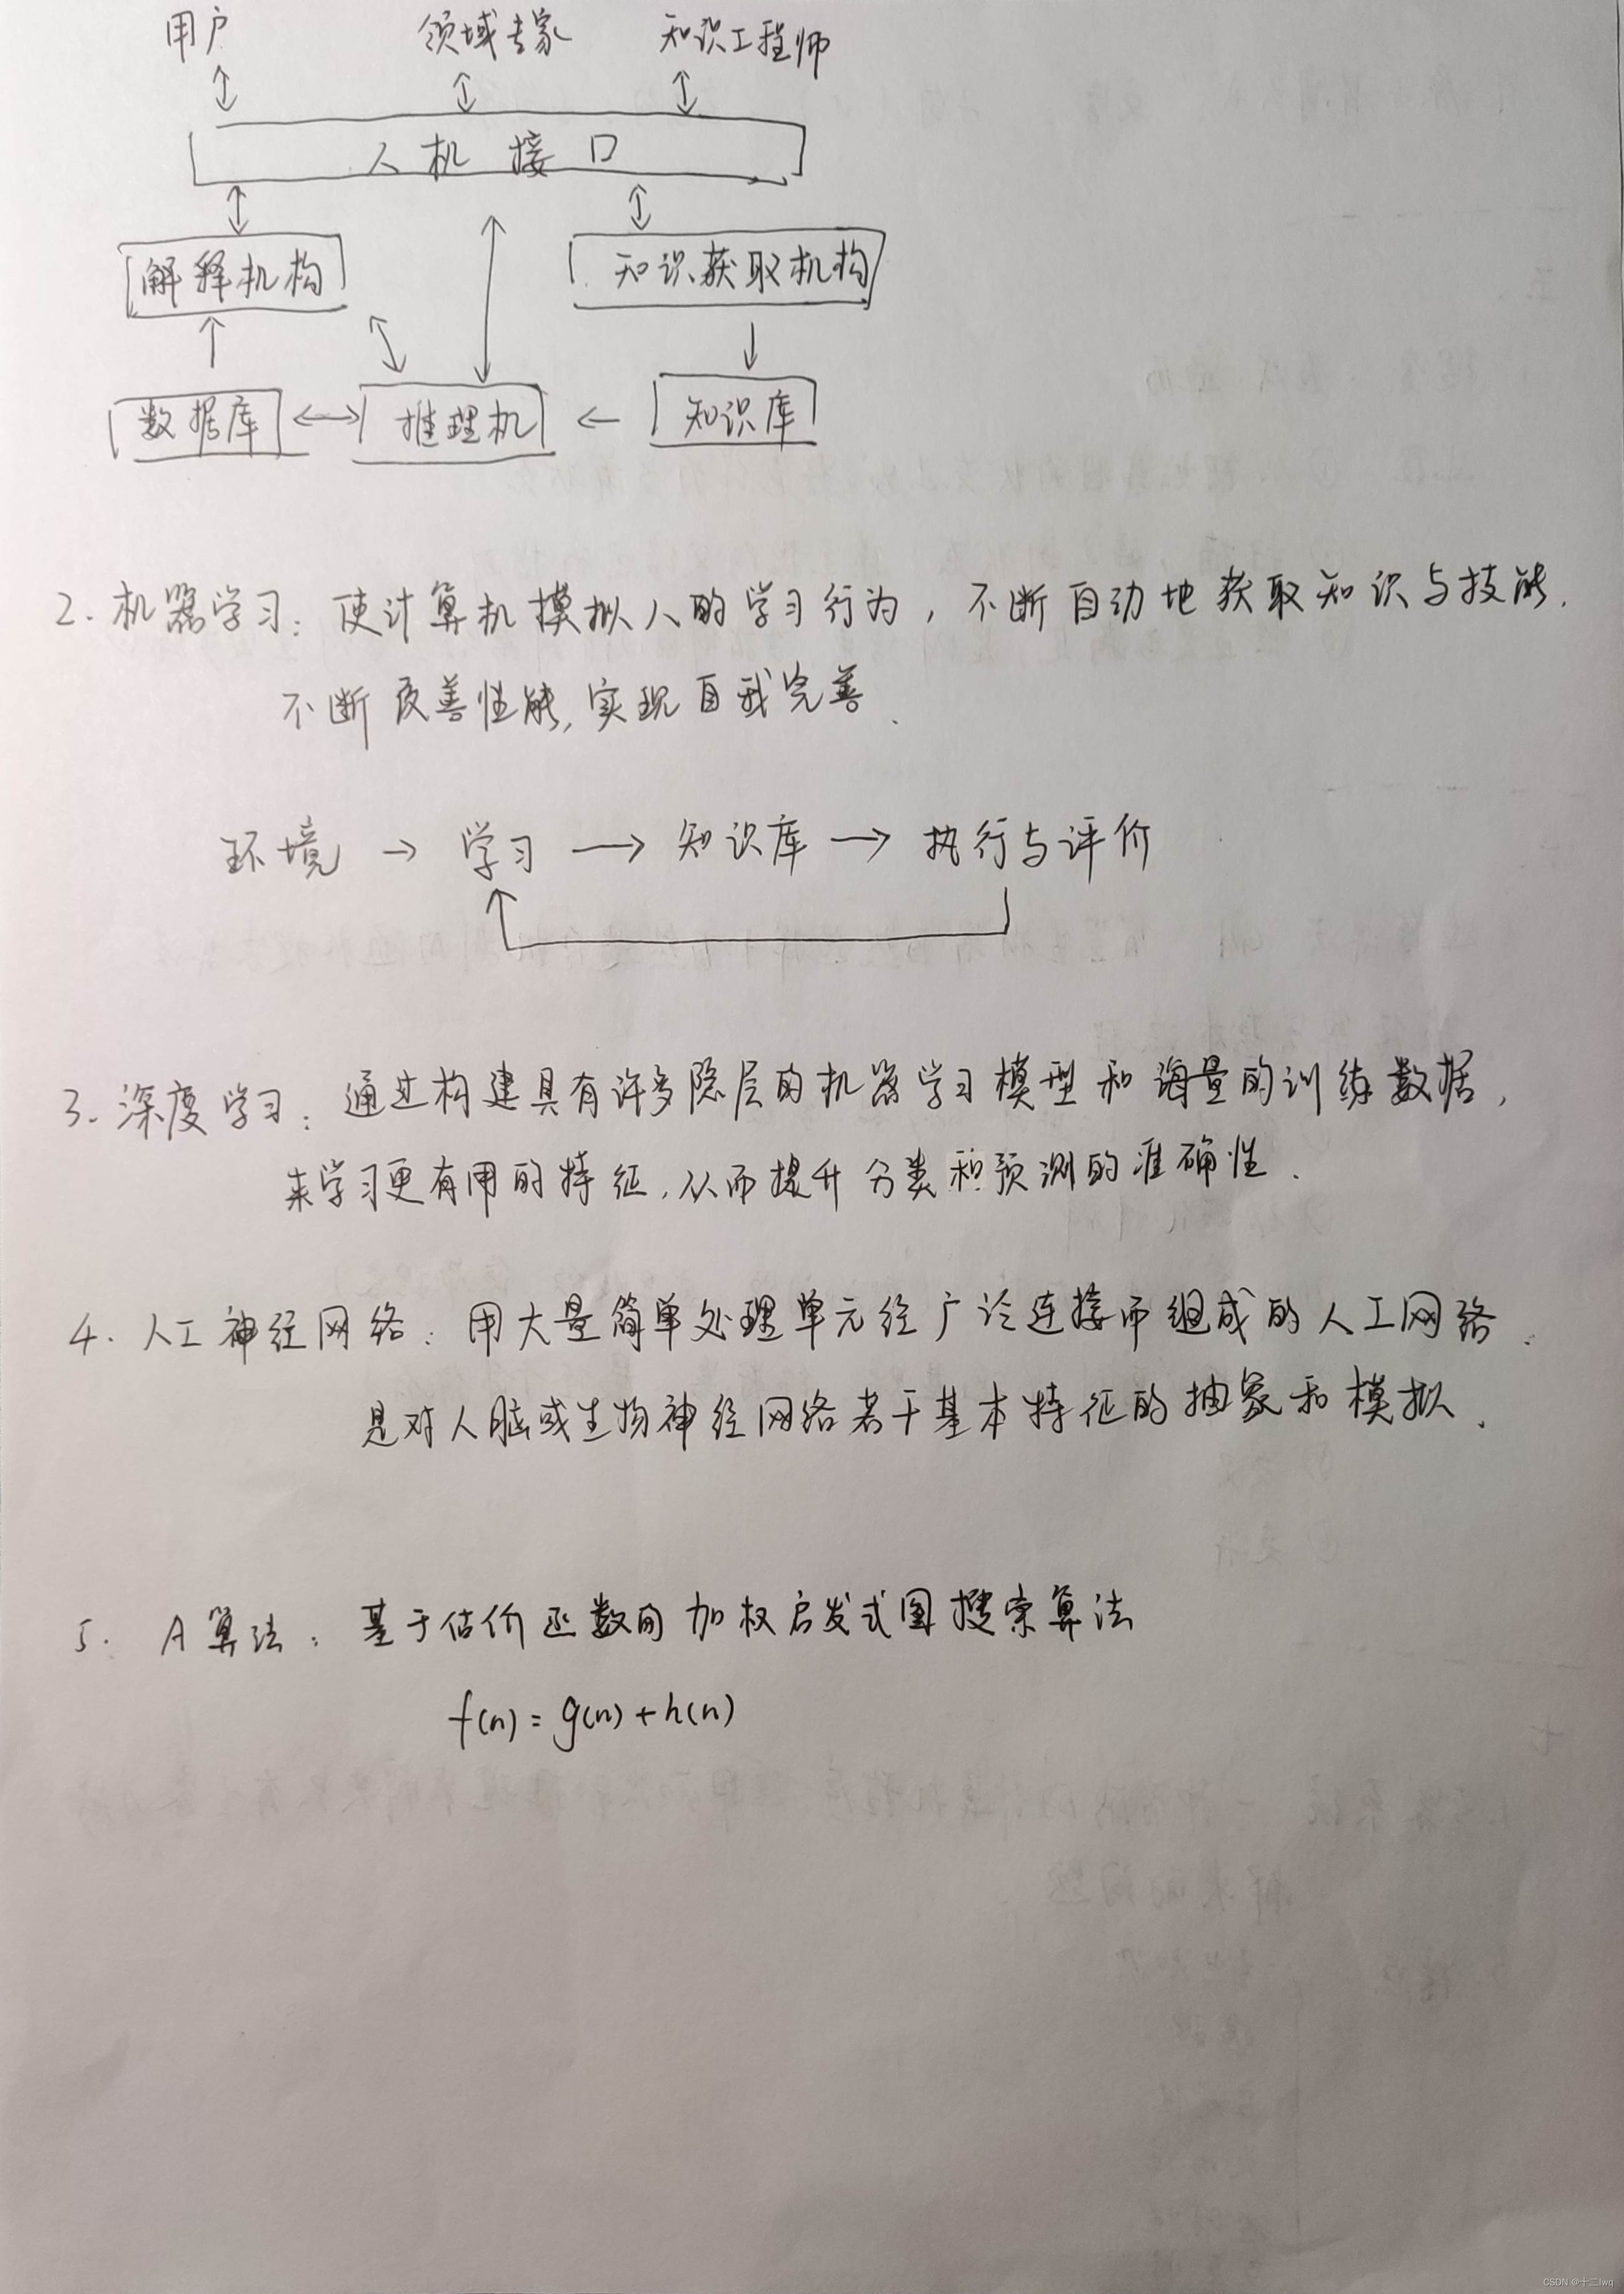 用户 领域专家 知识工程师
人机接口
解释机构 知识获取机构
数据库 推理机 知识库
2. 机器学习: 使计算机模拟人的学习行为, 不断自动地获取知识与技能.
不断改善性能, 实现自我完善.
环境 → 学习 → 知识库 → 执行与评价
3. 深度学习: 通过构建具有许多隐层的机器学习模型和海量的训练数据,
来学习更有用的特征, 从而提升分类和预测的准确性.
4. 人工神经网络: 用大量简单处理单元经广泛连接而组成的人工网络.
是对人脑或生物神经网络若干基本特征的抽象和模拟.
5. A算法: 基于估价函数的加权启发式图搜索算法
f(n) = g(n) + h(n)
CSDN @十三lwq